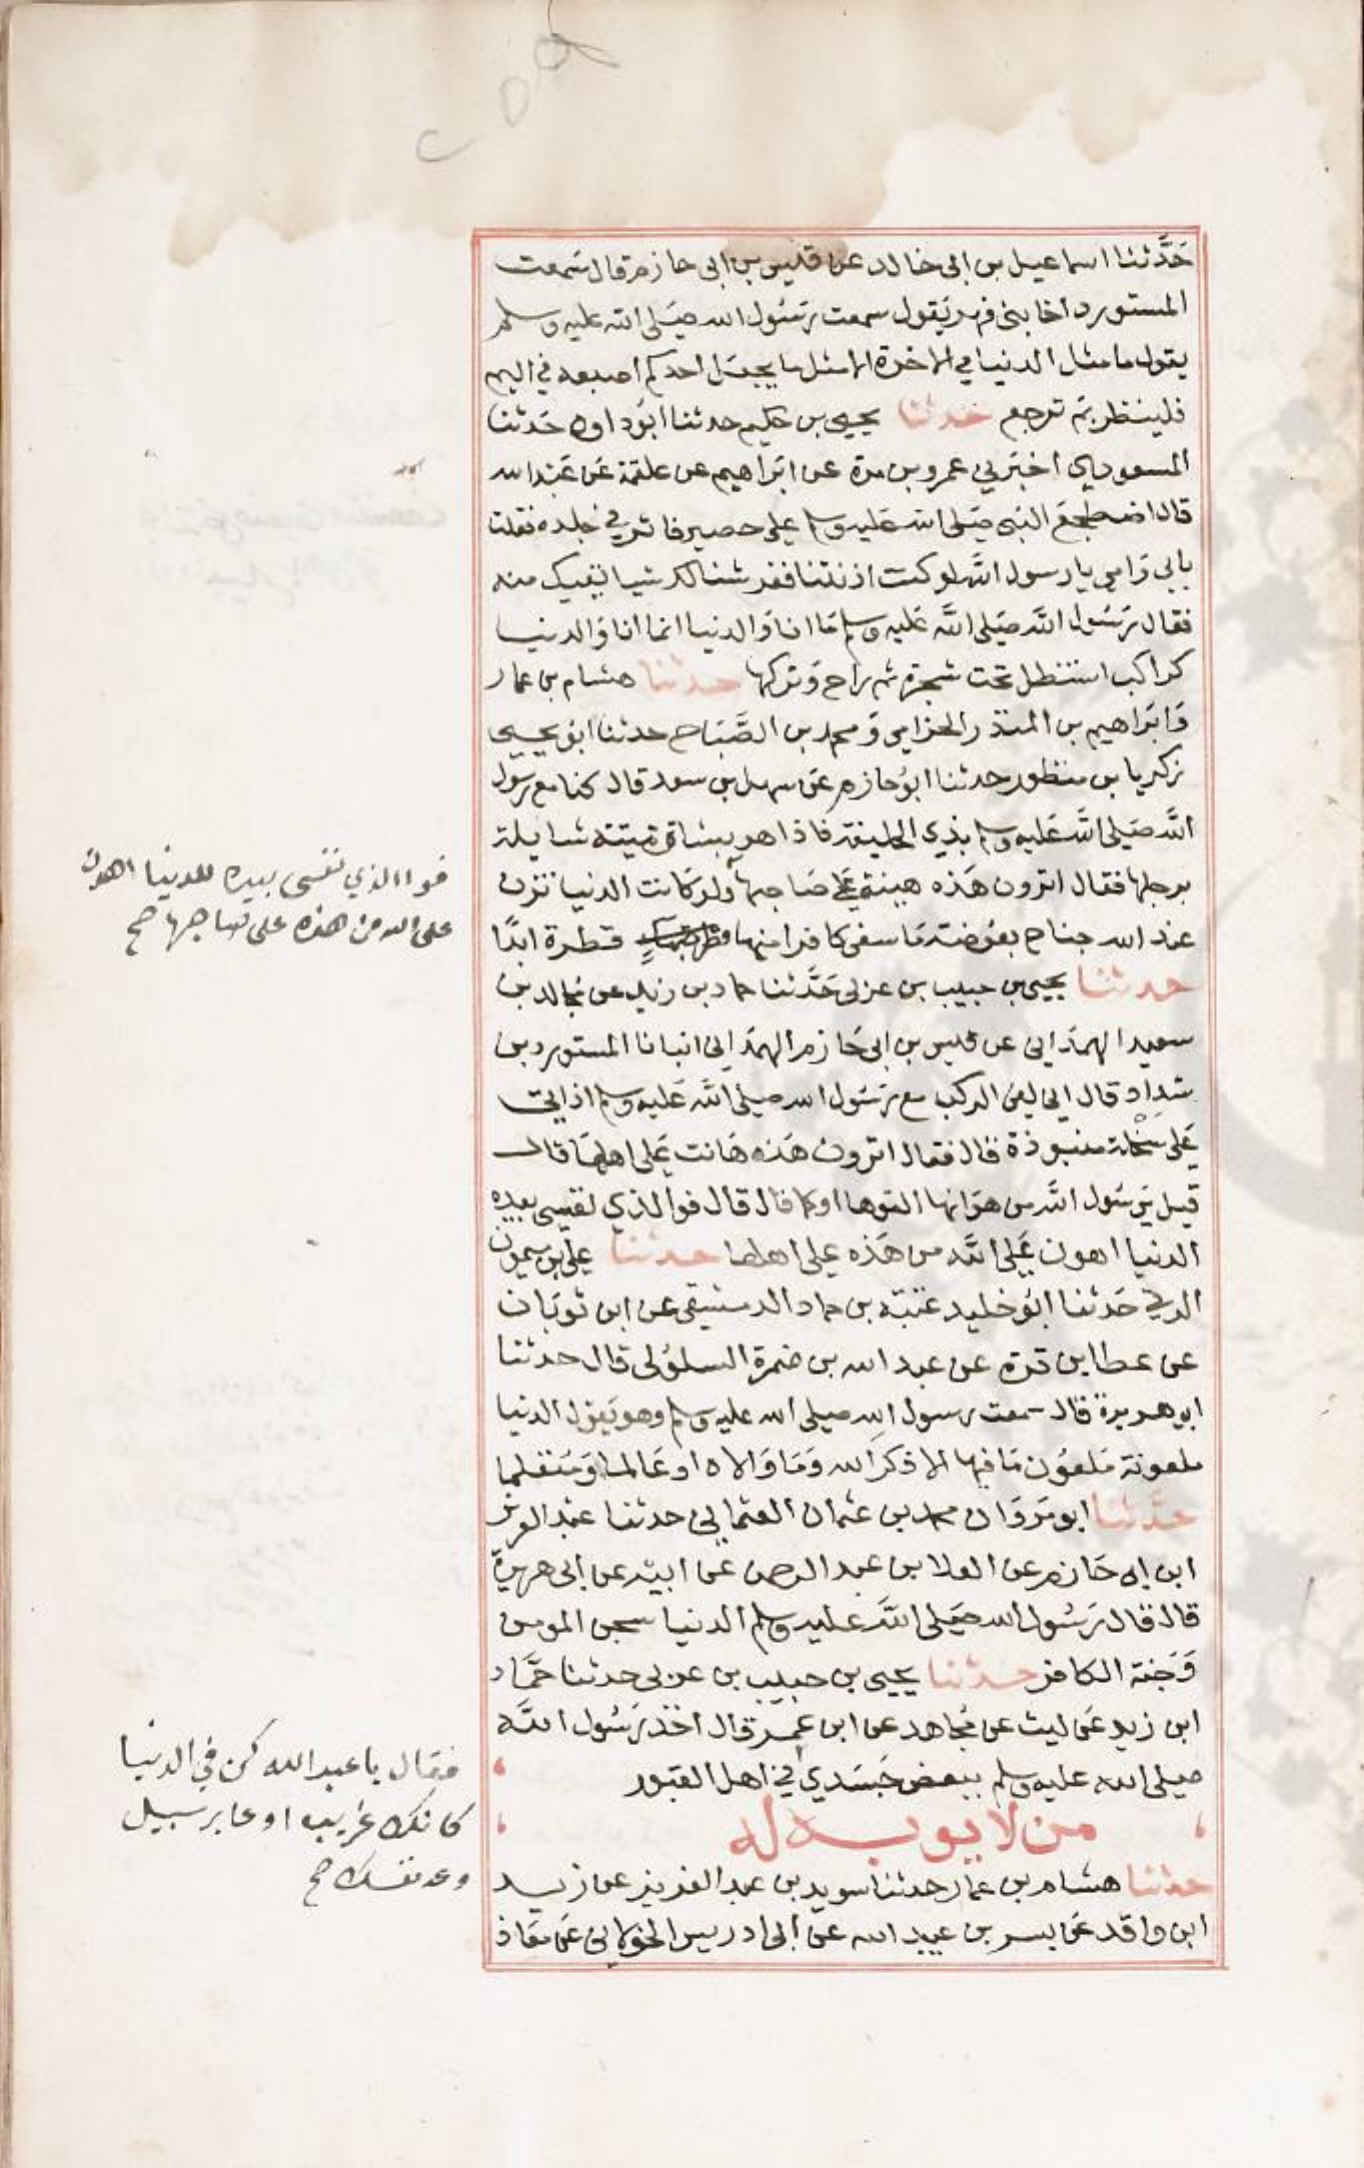 حَدَّثنا اسماعيل بن ابى خالد عن قيس بن ابى حازم قال سَمعت
المستورد اخا بنى فهر يَقول سمعت رسُول الله صَلى الله عليه وسلم
يقول ما مثل الدنيا في الاخرة الا مثل ما يجعَل احدكم اصبعه في اليم
فلينظر بم ترجع حدثنا يحيى بن حكيم حدثنا ابوُ داود حَدثنا
المسعودي اخبَرني عمرو بن مرة عن ابرَاهيم عن علقمة عَن عَبد الله
قال اضطجعَ النبى صَلى الله عَليه وسلم على حصير فاثر في جلده فقلت
بابى وَامي يا رسول الله لو كنت اذنتنا ففرشنا لك شيا يقيك منه
فقال رَسُول الله صَلى الله عَليه وسلم مَا انا وَالدنيا انما انا وَالدنيا
كراكب استظل تحت شجرة ثم راح وَتركها حدثنا هشام بن عمار
وَابرَاهيم بن المنذر الحزامي وَمحمد بن الصَّبَاح حدثنا ابو يحيى
زكريا بن منظور حدثنا ابوُ حازم عَن سهل بن سعد قال كنا مع رسول
الله صَلى الله عَليه وسلم بذي الحليفة فاذا هو بشاة ميتة شايلة
برجلها فقال اترون هَذه هينة عَلى صَاحبها ولو كانت الدنيا تزن
عند الله جناح بعوضة مَا سقى كافرا منها قطرة ابدًا
حدثنا يحيى بن حبيب بن عربى حَدَّثنا حماد بن زيد عن مجالد بن
سعيد الهمدَانى عن قيس بن ابى حَازم الهمدَانى انبانا المستورد بن
شداد قال انى لفى الركب مع رَسُول الله صَلى الله عَليه وسلم اذ اتى
عَلى سَخلة منبوذة قال فقال اترون هَذه هَانت عَلى اهلهَا قال
قيل يَرسُول الله من هَوَانها القوها او كما قال قال فوالذي نفسى بيده
الدنيا اهون عَلى الله من هَذه على اهلها حدثنا علي بن ميمون
الرقي حَدثنا ابوُ خليد عتبَة بن حماد الدمشقى عن ابن ثوبَان
عن عطا بن قرة عن عبد الله بن ضمرة السلوُلى قال حدثنا
ابو هريرة قال سمعت رسول الله صلى الله عليه وسلم وهو يَقول الدنيا
ملعونة مَلعوُن مَا فيها الا ذكر الله وَمَا وَالاه او عَالما وَمتعَلما
حدَّثنا ابو مَروَان محمد بن عثمان العثمانى حدثنا عبد العزيز
ابن ابى حَازم عن العلا بن عبد الرحمن عن ابيه عن ابى هريرة
قال قال رَسُول الله صَلى الله عَليه وسلم الدنيا سجن المومن
وَجَنة الكافر حدثنا يحيى بن حبيب بن عربى حدثنا حمَّاد
ابن زيد عَن ليث عن مُجاهد عن ابن عُمَر قال اخذ رَسُول الله
صلى الله عليه وسلم ببعض جَسَدي في اهل القبور
من لا يوبه له
حدثنا هشام بن عمار حدثنا سويد بن عبد العزيز عن زيد
ابن واقد عَن بسر بن عبيد الله عن ابى ادريس الخولانى عَن مُعَاذ
فوا الذي نفسى بيده للدنيا اهون
على الله من هذه على صاحبها صح
فقال يا عبد الله كن في الدنيا
كانك غريب او عابر سبيل
وعد نفسك صح